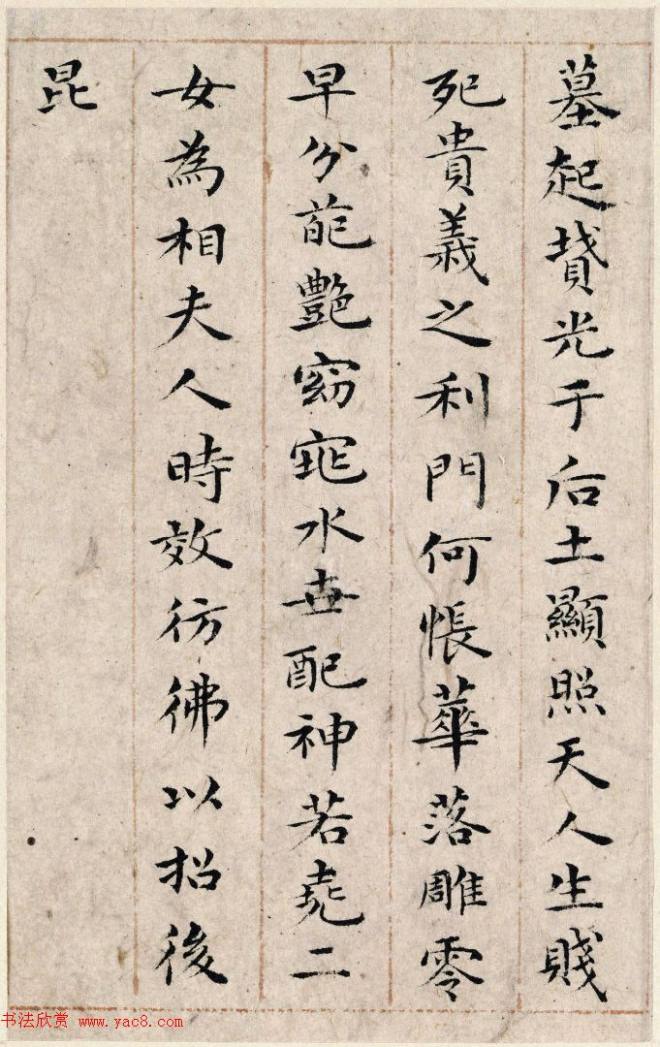 墓起墳光于后土顯照天人生賤
死貴義之利門何悵華落雕零
早分葩豔窈窕水世配神若堯二
女為相夫人時效彷彿以招後
昆
书法欣赏 www.yac8.com